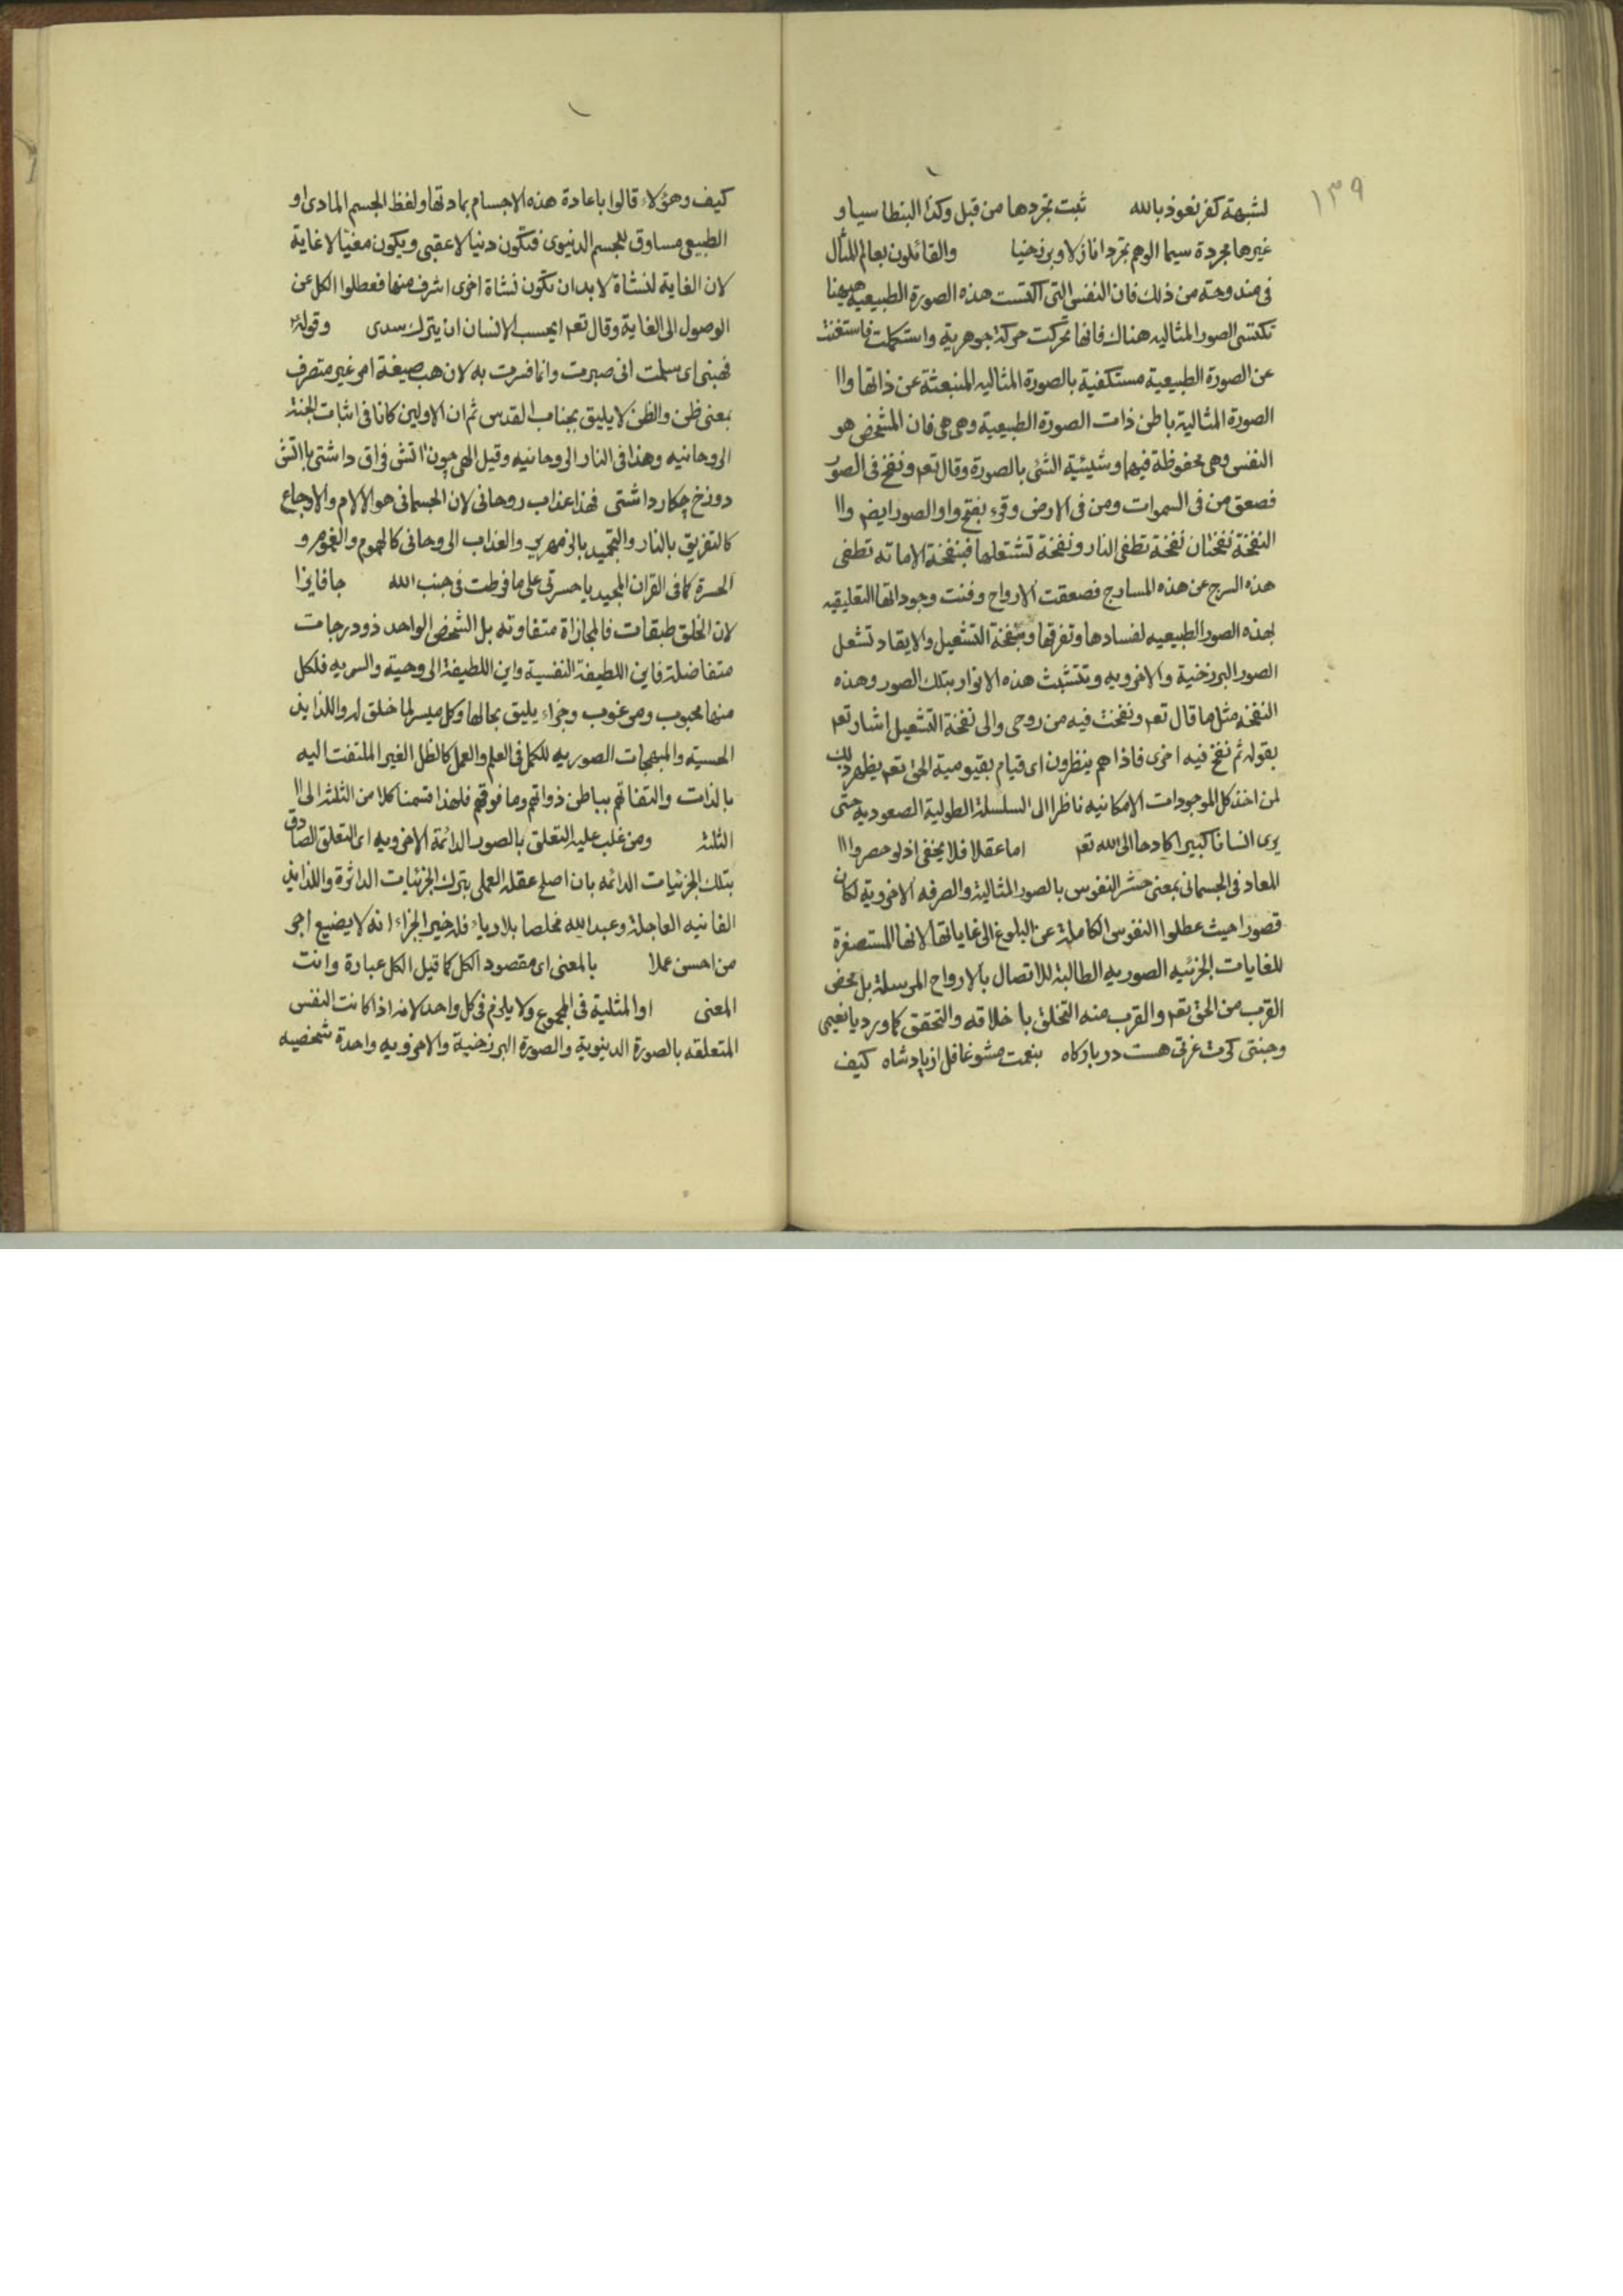 ١٣٩
لشبهة كفر نعوذ بالله ثبت تجردها من قبل وكذا البنطاسيا و
غيرها مجردة سيما الوهم تجردا نازلا وبرزخيا والقائلون بعالم المثال
فى مندوحة من ذلك فان النفس التى اكتست هذه الصورة الطبيعيه هيهنا
تكتسى الصور المثاليه هناك فانها تحركت حركة جوهرية واستكملت فاستغنت
عن الصورة الطبيعية مستكفية بالصورة المثاليه المنبعثة عن ذاتها واا
الصورة المثالية باطن ذات الصورة الطبيعية وهى هى فان المشخص هو
النفس وهى محفوظة فيهما وشيئية الشئ بالصورة وقال تعم ونفخ فى الصور
فصعق من فى السموات ومن فى الارض وقرء بفتح واو الصور ايضم واا
النفخة نفختان نفخة تطفى النار ونفخة تشتعلها فبنفخة الاماته تطفى
هذه السرج عن هذه المسارج فصعقت الارواح وفنت وجوداتها التعليقيه
بهذه الصور الطبيعيه لفسادها وتفرقها وبنفخة التشعيل والايقاد تشعل
الصور البرزخية والاخرويه وتتشبث هذه الانوار بتلك الصور وهذه
النفخه مثل ما قال تعم ونفخت فيه من روحى والى نفخة التشعيل اشار تعم
بقوله ثم نفخ فيه اخرى فاذا هم ينظرون اى قيام بقيومية الحق تعم يظهر ذلك
لمن اخذ كل الموجودات الامكانيه ناظرا الى السلسلة الطولية الصعوديه حتى
يرى انسانا كبيرا كادحا الى الله تعم اما عقلا فلا يخفى اذ لو حصروا اا
المعاد فى الجسمانى بمعنى حشر النفوس بالصور المثالية والصرفه الاخروية لكان
قصورا حيث عطلوا النفوس الكاملة عن البلوغ الى غاياتها لانها المستصغرة
للغايات الجزئيه الصوريه الطالبة للاتصال بالارواح المرسلة بل محض
القرب من الحق تعم والقرب منه التخلق باخلاقه والتحقق كما ورد يا نعيمى
وجنتى كرت عزتى هست در باركاه بنعمت مشو غافل از يادشاه كيف
كيف وهؤلاء قالوا باعادة هذه الاجسام بمادتها ولفظ الجسم المادى او
الطبيعى مساوق للجسم الدنيوى فتكون دنيا لا عقبى ويكون مغيا لا غاية
لان الغاية لنشاة لا بد ان تكون نشاة اخرى اشرف منها فعطلوا الكل عن
الوصول الى الغاية وقال تعم ايحسب الانسان ان يترك سدى وقوله
فهبنى اى سلمت انى صبرت وانما فسرت به لان هب صيغة امر غير متصرف
بمعنى ظن والظن لا يليق بجناب القدس ثم ان الاولين كانا فى اثبات الجنة
الروحانيه وهذا فى النار الروحانيه وقيل الهى چون اتش فراق داشتى با اتش
دوزخ چكار داشتى فهذا عذاب روحانى لان الجسمانى هو الالام والاوجاع
كالتفريق بالنار والتجميد بالزمهرير والعذاب الروحانى كالهموم والغموم و
الحسرة كما فى القران المجيد يا حسرتى على ما فرطت فى جنب الله جافايزا
لان الخلق طبقات فالمجازاة متفاوته بل الشخص الواحد ذو درجات
متفاضلة فاين اللطيفة النفسية واين اللطيفة الروحية والسريه فلكل
منها محبوب ومرغوب وجزاء يليق بحالها وكل ميسر لما خلق له واللذايذ
الحسية والمبهجات الصوريه للكمل فى العلم والعمل كالظل الغير الملتفت اليه
بالذات والتفاتهم بباطن ذواتهم وما فوقهم فلهذا قسمنا كلا من الثلثة الى اا
الثلثة ومن غلب عليه التعلق بالصور الدائمة الاخرويه اى التعلق الصادق
بتلك الجزئيات الدائمه بان اصلح عقله العملى بترك الجزئيات الداثرة واللذايذ
الفانيه العاجلة وعبد الله مخلصا بلا رياء فله خير الجزاء انه لا يضيع اجر
من احسن عملا بالمعنى اى مقصود الكل كما قيل الكل عبارة وانت
المعنى او المثلية فى المجموع ولا يلزم فى كل واحد لانه اذا كانت النفس
المتعلقه بالصورة الدينوية والصورة البرزخية والاخرويه واحدة شخصيه